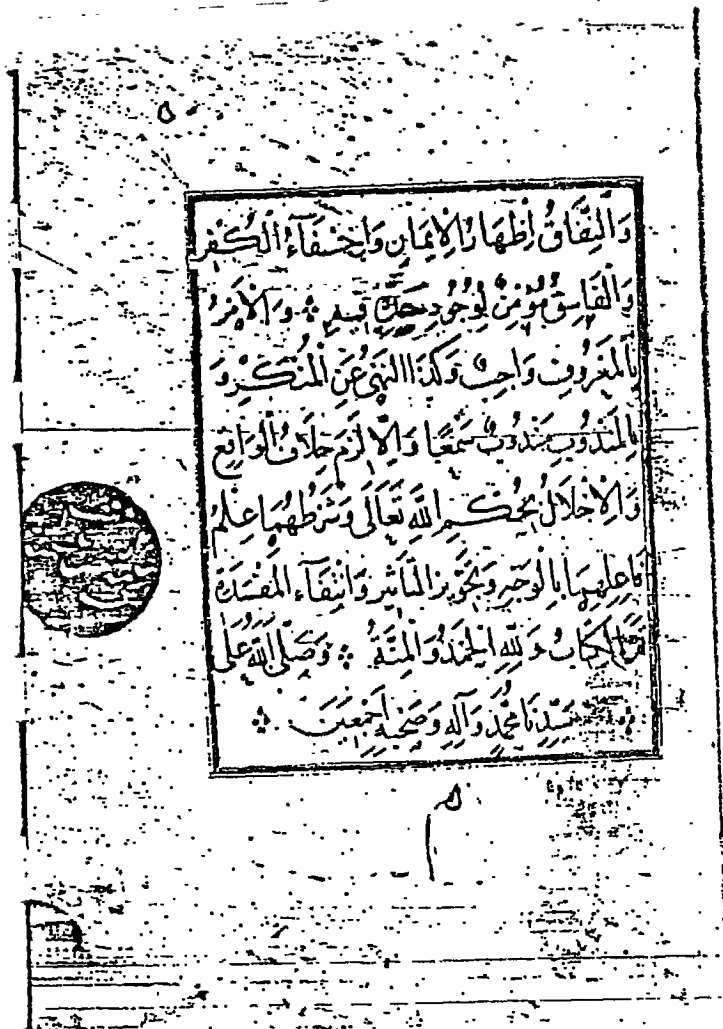 وَالنِّفَاقُ اِظْهَارُ الْاِيمَانِ وَاِخْفَآءُ الْكُفْرِ
وَالْفَاسِقُ مُؤْمِنٌ لِوُجُودِ حَدِّهِ فِيهِ ∴ وَالْاَمْرُ
بِالْمَعْرُوفِ وَاجِبٌ وَكَذَا النَّهْيُ عَنِ الْمُنْكَرِ وَ
بِالْمَنْدُوبِ مَنْدُوبٌ سَمْعًا وَاِلَّا لَزِمَ خِلَافُ الْوَاقِعِ
وَالْاِخْلَالُ بِحُكْمِ اللّٰهِ تَعَالَى وَشَرْطُهُمَا عِلْمُ
فَاعِلِهِمَا بِالْوَجْهِ وَتَجْوِيزُ التَّاْثِيرِ وَانْتِفَآءُ الْمَفْسَدَةِ
تَمَّ الْكِتَابُ وَلِلّٰهِ الْحَمْدُ وَالْمِنَّةُ ∴ وَصَلَّى اللّٰهُ عَلَى
سَيِّدِنَا مُحَمَّدٍ وَآلِهِ وَصَحْبِهِ اَجْمَعِينَ ∴